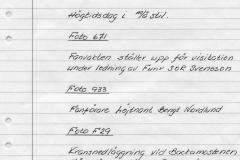 Högtidsdag i m/å stil.
Foto 671
Fanvakten ställer upp för visitation
under ledning av Furir SOR Svensson
Foto 933
Fanförare löjtnant Bengt Nordlund
Foto F29
Kransnedläggning vid Backamostenen